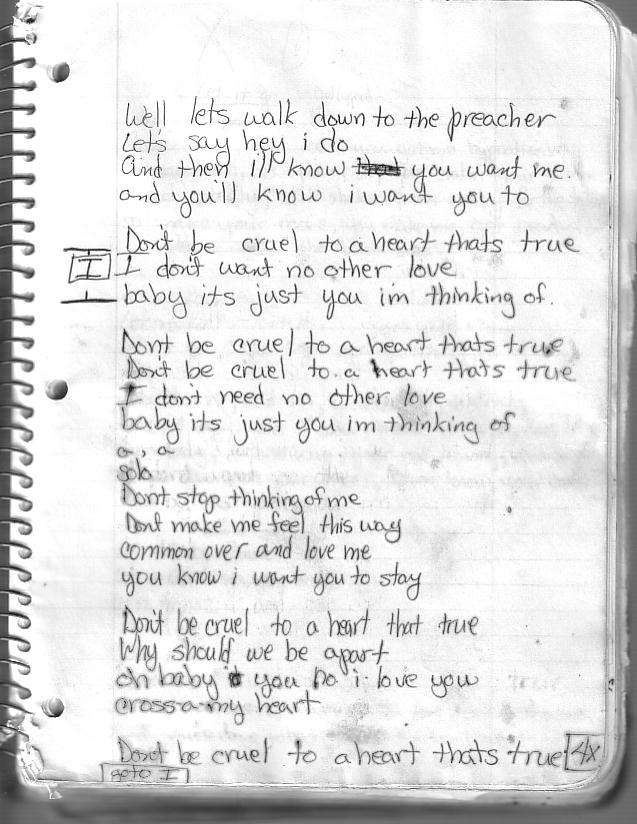 Well lets walk down to the preacher
Let's say hey i do
And then i'll know you want me.
and you'll know i want you to
Don't be cruel to a heart thats true
I
I don't want no other love
baby its just you i'm thinking of.
Dont be cruel to a heart thats true
Don't be cruel to a heart that's true
I don't need no other love
baby its just you im thinking of
solo
Dont stop thinking of me
Dont make me feel this way
common over and love me
you know i want you to stay
Don't be cruel to a heart that true
Why should we be apart
oh baby you no i love you
cross-a-my heart
Don't be cruel to a heart thats true 4x
goto I